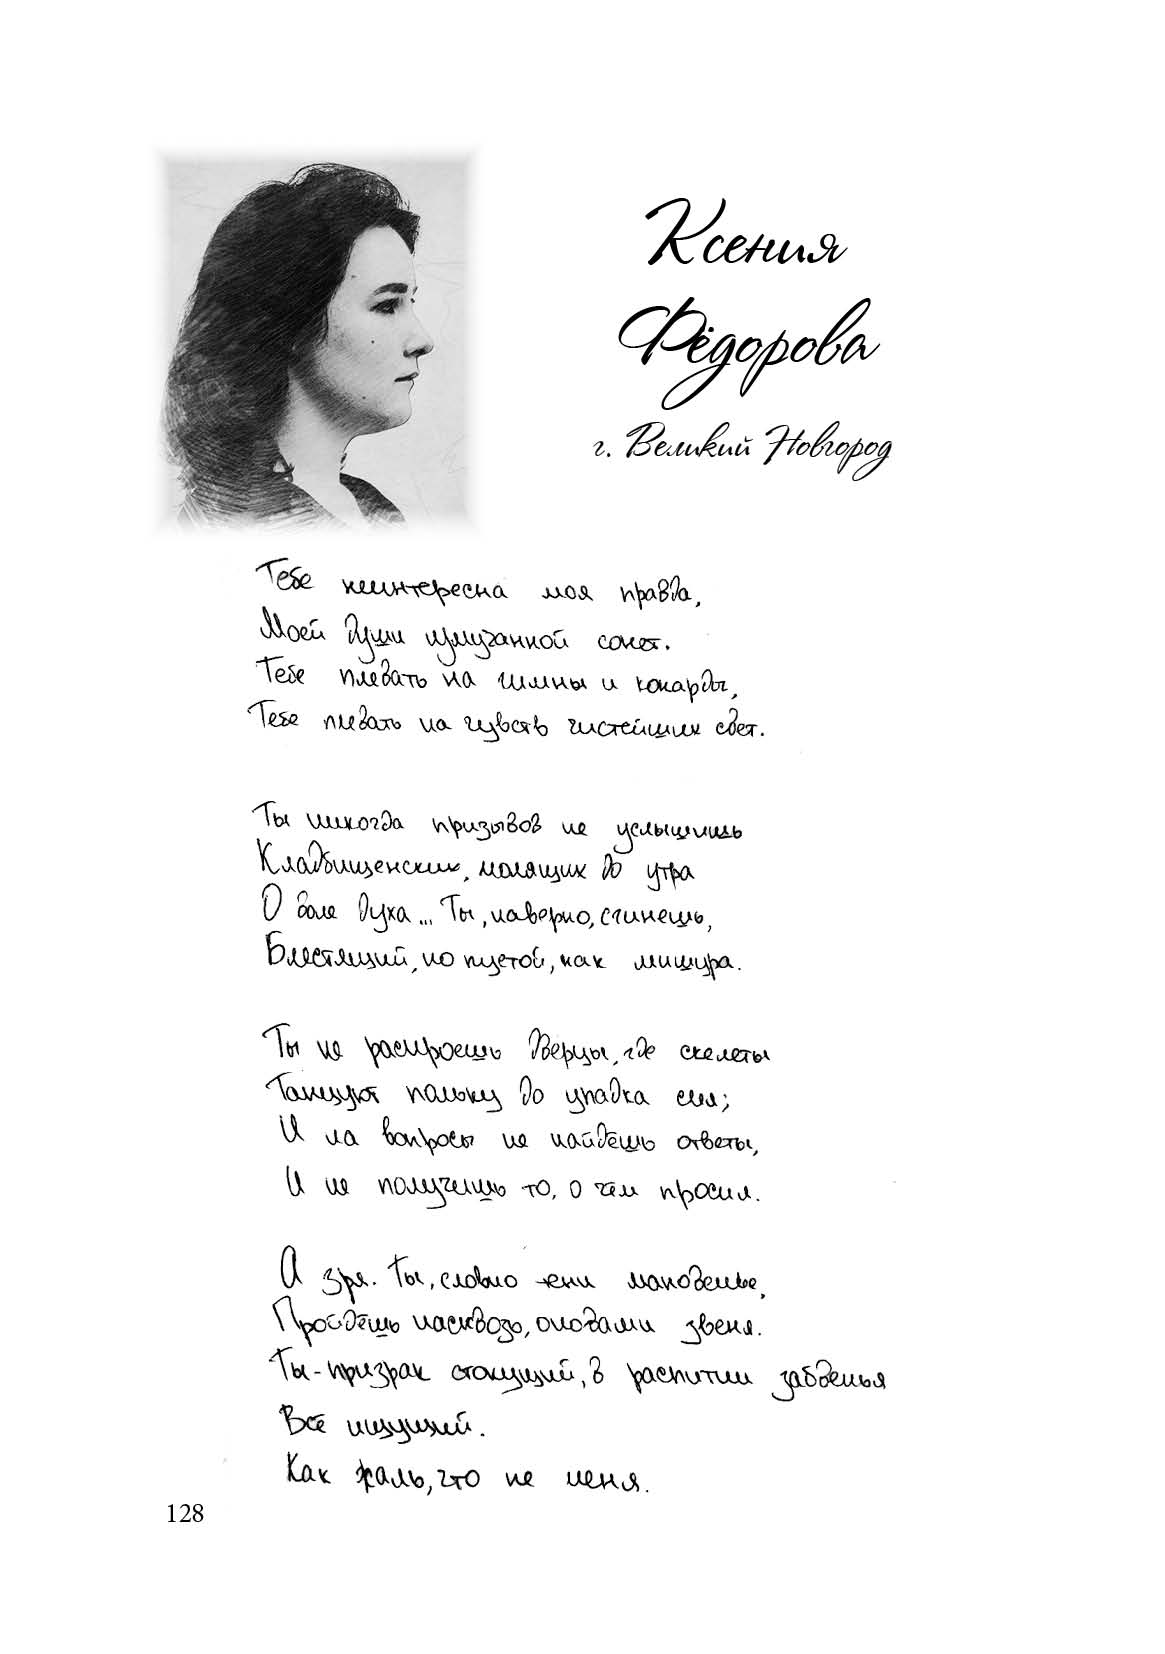 Ксения
Фёдорова
г. Великий Новгород
Тебе неинтересна моя правда,
Моей души измученной сонет.
Тебе плевать на гимны и кокарды,
Тебе плевать на чувств чистейших свет.
Ты никогда призывов не услышишь
Кладбищенских, молящих до утра
О боле духа... Ты, наверно, сгинешь,
Блестящий, но пустой, как мишура.
Ты не раскроешь дверцы, где скелеты
Танцуют польку до упадка сил;
И на вопросы не найдёшь ответы,
И не получишь то, о чём просил.
А зря. Ты, словно тени мановенье,
Пройдёшь насквозь, оковами звеня.
Ты - призрак стонущий, в распитии забвенья
Всё ищущий.
Как жаль, что не меня.
128